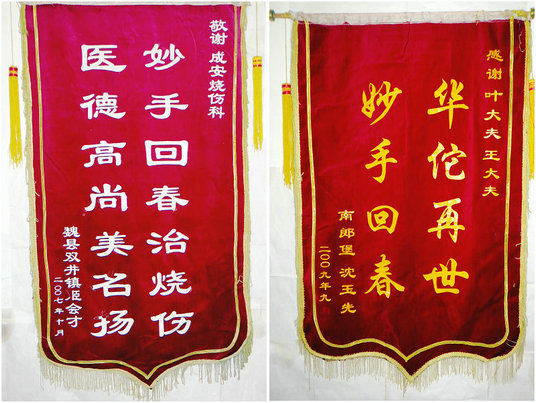 敬谢 成安烧伤科
妙手回春治烧伤
医德高尚美名扬
魏县双井镇 会才
二〇〇七年十月
感谢 叶大夫 王大夫
华佗再世
妙手回春
南郎堡 沈玉先
二〇〇九年九